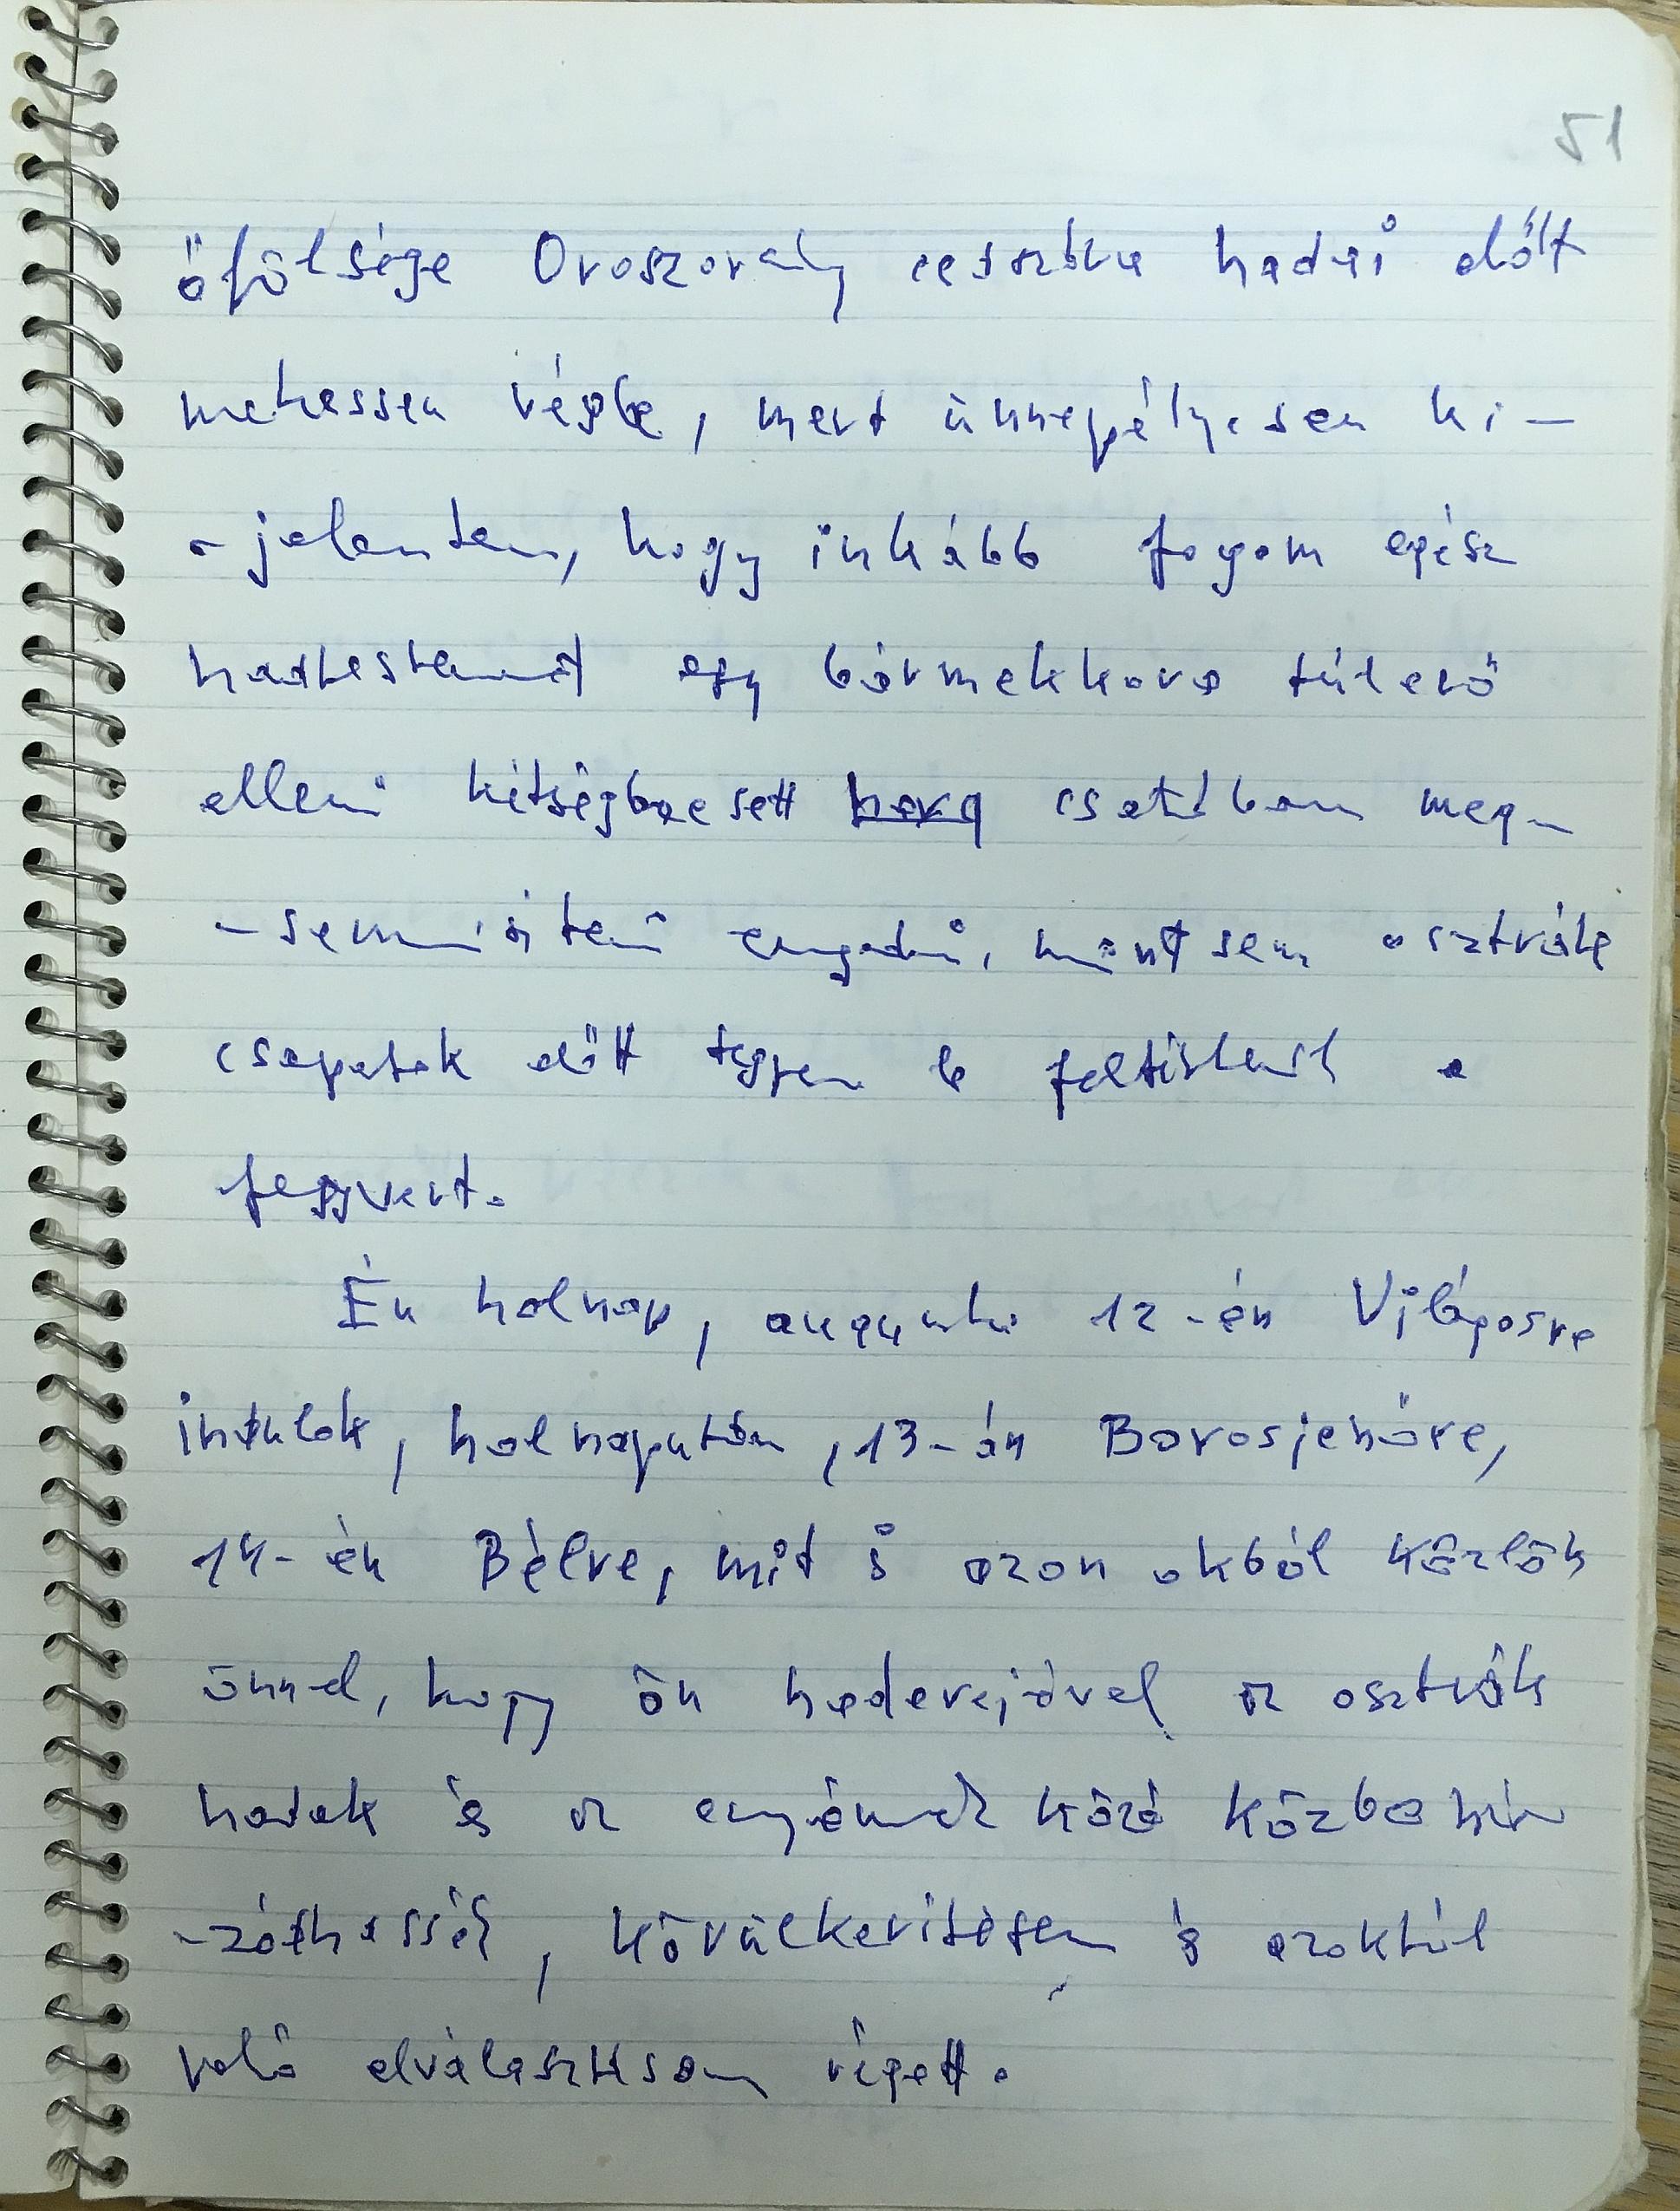 51
őfölsége Oroszország császára hadai előtt
mehessen végbe, mert ünnepélyesen ki-
-jelentem, hogy inkább fogom egész
hadtestemet egy bármekkora túlerő
elleni kétségbeesett harg csatában meg-
-semmisíteni engedni, mintsem osztrák
csapatok előtt tegyem le feltétlenül a
fegyvert.
Én holnap, augusztus 12-én Világosra
indulok, holnapután, 13-án Borosjenőre,
14-én Bélre, mit is azon okból közlök
önnel, hogy ön haderejével az osztrák
hadak és az enyémek közé közbe hú-
-zódhassék, körülkerítésem és azoktól
való elválasztásom végett.